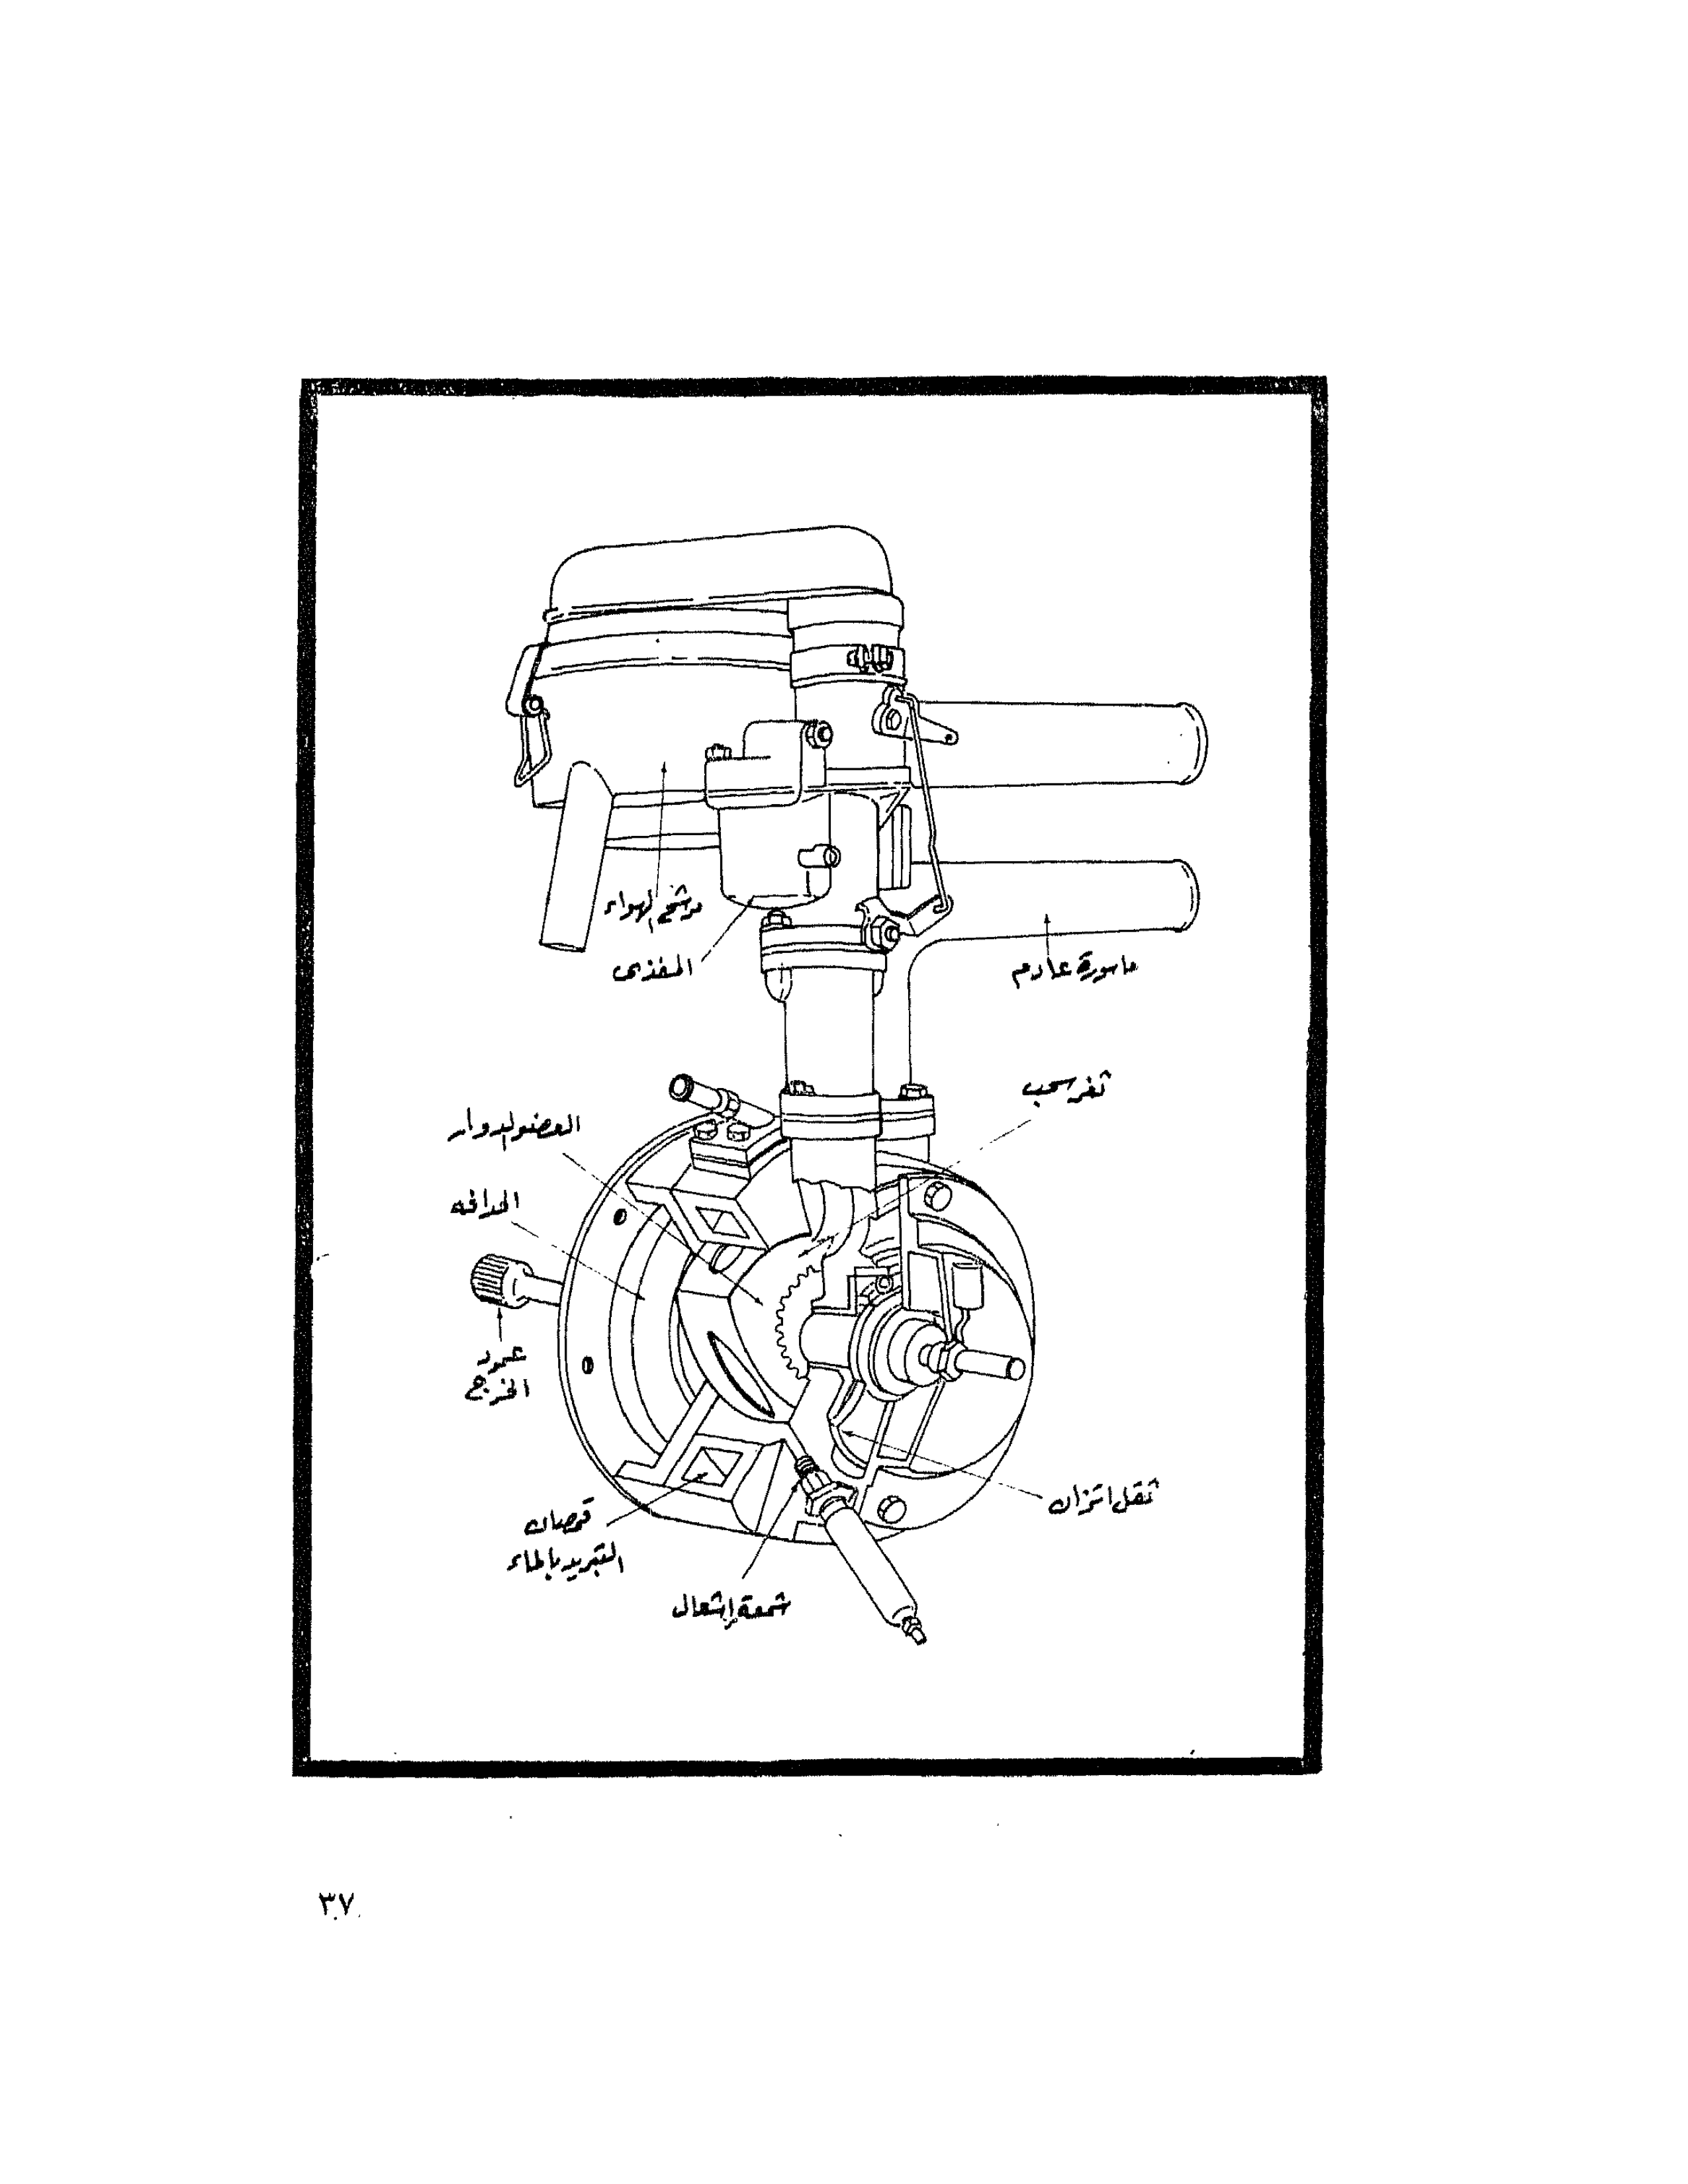 مرشح الهواء
المغذى
ماسورة عادم
ثغر سحب
العضو الدوار
الحدافه
عمود
الخرج
ثقل اتزان
قمصان
التبريد بالماء
شمعة إشعال
٣٧